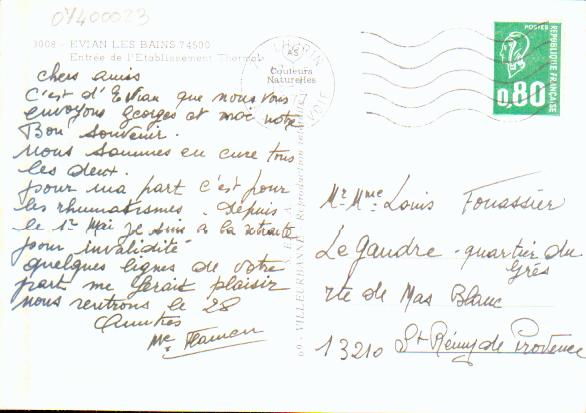 07400023
3008 - EVIAN LES BAINS 74500
Entrée de l'Etablissement Thermal
Couleurs
Naturelles
POSTES
REPUBLIQUE FRANÇAISE
0,80
77
chers amis
C'est d'Evian que nous vous
envoyons georges et moi notre
Bon Souvenir.
nous sommes en cure tous
les deux.
pour ma part c'est pour
les rhumatismes. depuis
le 1er Mai je suis a la retraite
pour invalidité
quelques lignes de votre
part me ferais plaisir
nous rentrons le 28
Amitiés
Me Flaman
69 - VILLEURBANNE - Reproduction
Mr. Mme. Louis Fouassier
Le Gaudre - quartier du
Grés
rte de Mas Blanc
13210 St Rémy de Provence